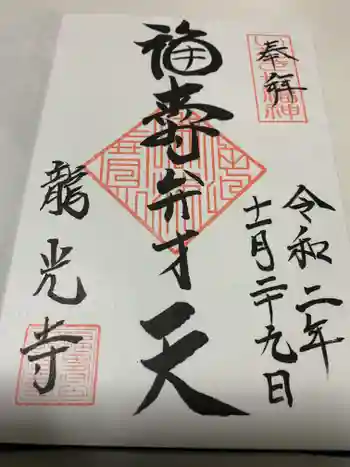 奉拝
令和二年
十一月二十九日
福寿弁才天
龍光寺